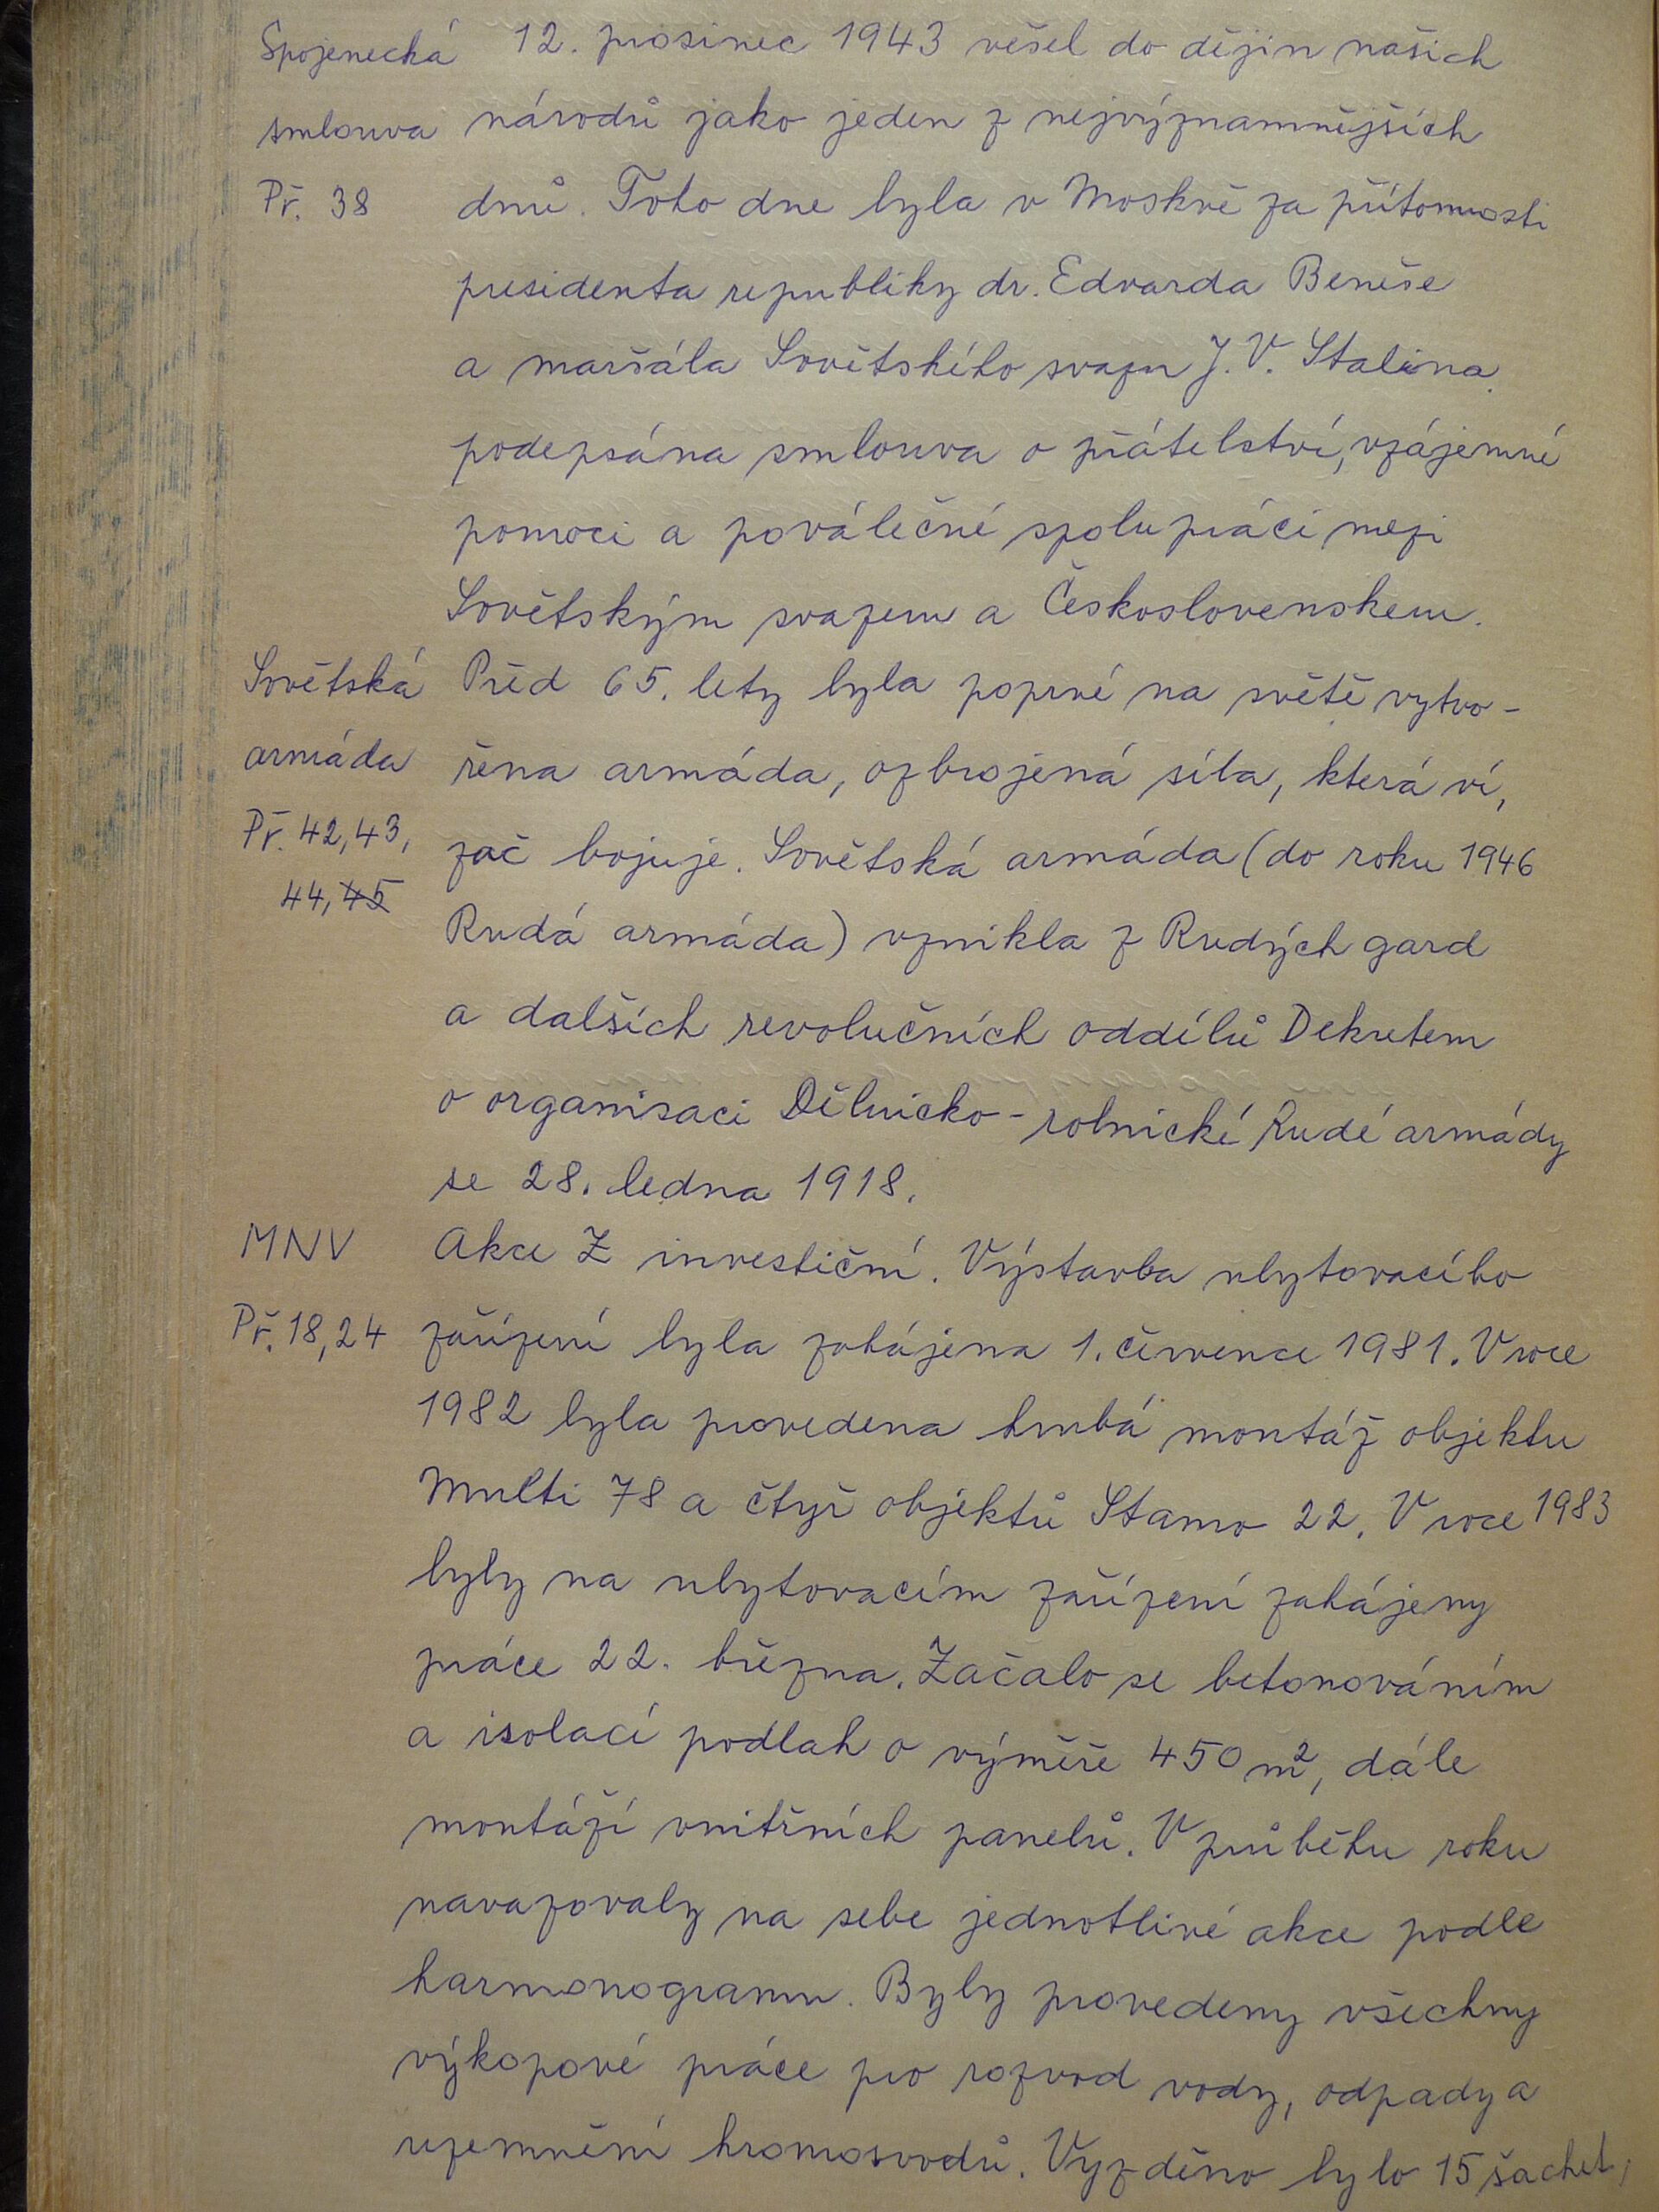 Spojenecká 12. prosinec 1943 vešel do dějin našich
smlouva národů jako jeden z nejvýznamnějších
Př. 38 dnů. Toho dne byla v Moskvě za přítomnosti
presidenta republiky dr. Edvarda Beneše
a maršála Sovětského svazu J. V. Stalina
podepsána smlouva o přátelství, vzájemné
pomoci a poválečné spolupráci mezi
Sovětským svazem a Československem.
Sovětská Před 65. lety byla poprvé na světě vytvo-
armáda řena armáda, ozbrojená síla, která ví,
Př. 42, 43, zač bojuje. Sovětská armáda (do roku 1946
44, 45 Rudá armáda) vznikla z Rudých gard
a dalších revolučních oddílů Dekretem
o organisaci Dělnicko-rolnické Rudé armády
ze 28. ledna 1918.
MNV Akce Z investiční. Výstavba ubytovacího
Př. 18, 24 zařízení byla zahájena 1. července 1981. V roce
1982 byla provedena hrubá montáž objektu
Multi 78 a čtyř objektů Stamo 22. V roce 1983
byly na ubytovacím zařízení zahájeny
práce 22. března. Začalo se betonováním
a isolací podlah o výměře 450 m², dále
montáží vnitřních panelů. V průběhu roku
navazovaly na sebe jednotlivé akce podle
harmonogramu. Byly provedeny všechny
výkopové práce pro rozvod vody, odpady a
uzemnění hromosvodů. Vyzděno bylo 15 šachet,